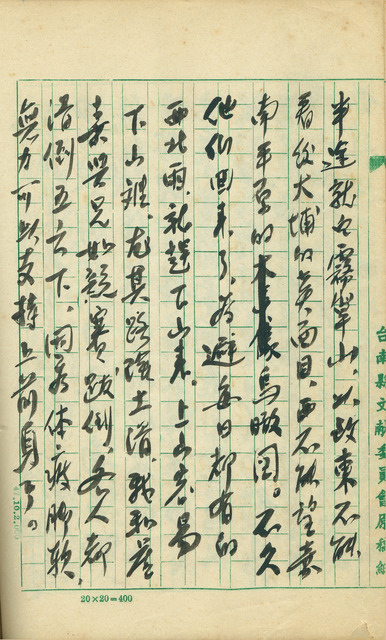 半途就白霧罩山，以致東不能
看後大埔的真面目，西不能望嘉
南平原的本島鳥瞰圖。不久
他們回來了，為避每日都有的
西北雨，就趕下山來。上山容易
下山難，尤其路護土滑，我和
吳兄如競賽跌倒，各人都
滑倒五六下。因為体疲脚軟，
無力可以支持上前身了。
台南縣文献委員會原稿紙
20×20=400